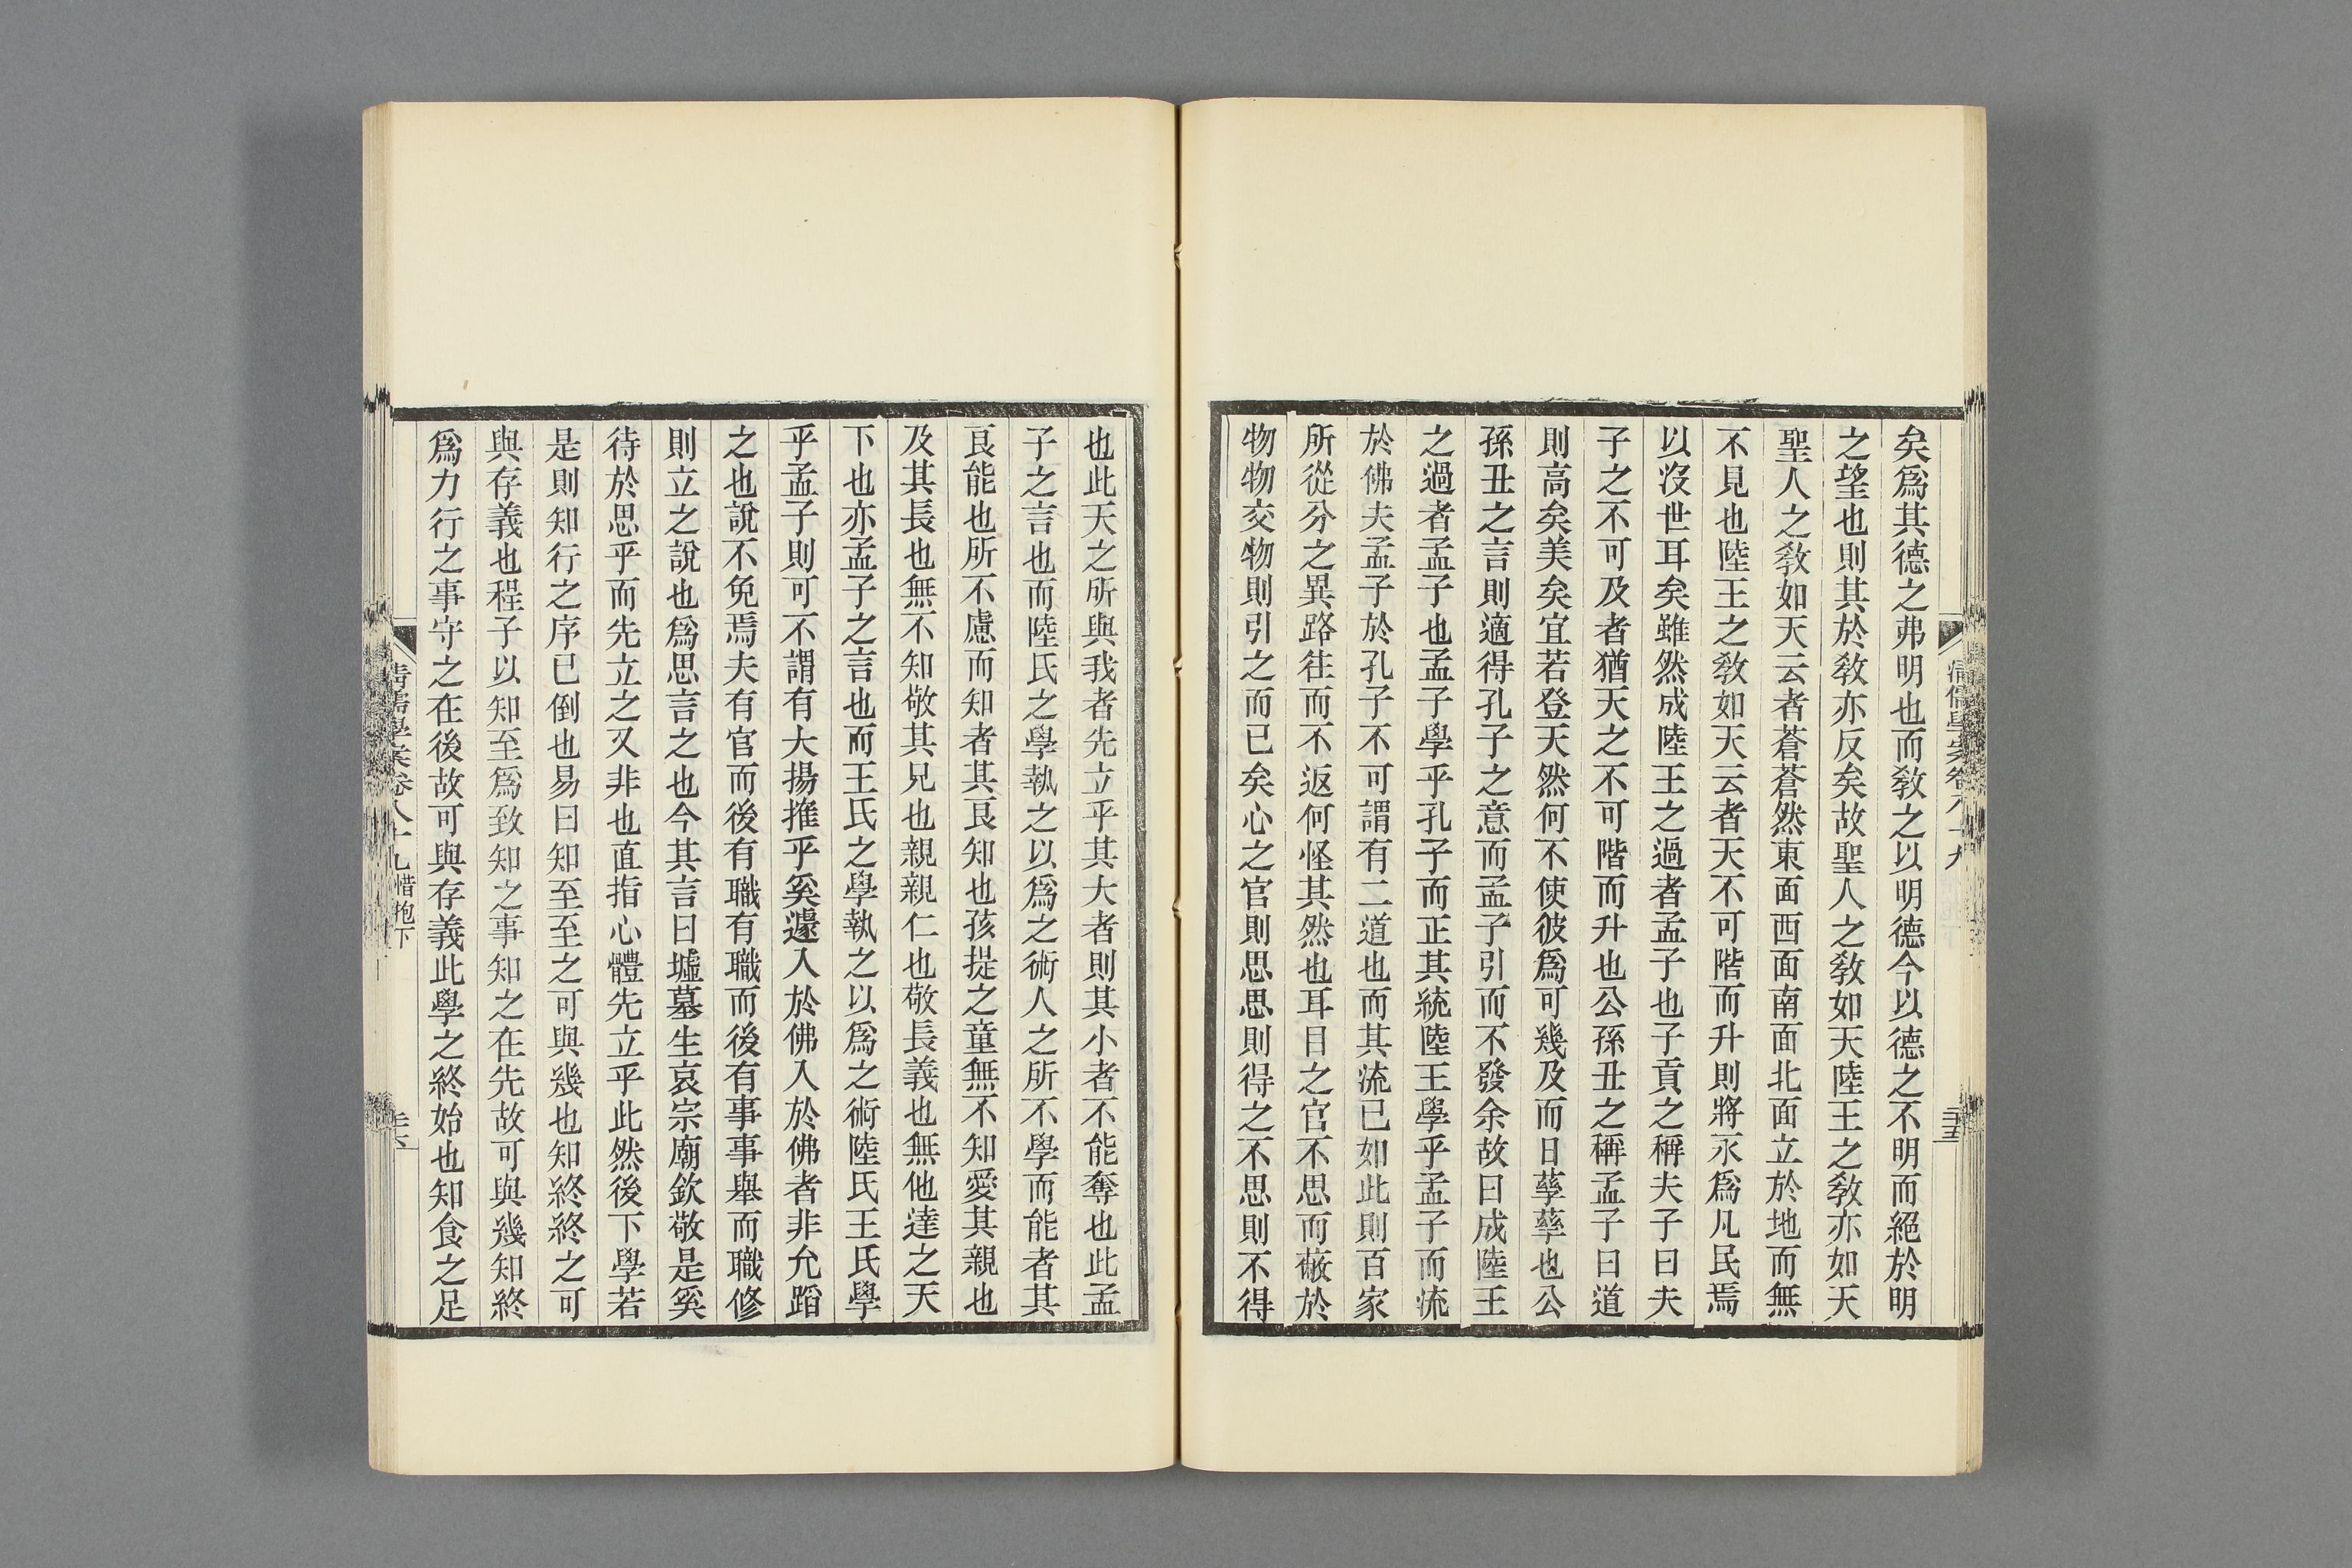 矣爲其德之弗明也而敎之以明德今以德之不明而絕於明
之望也則其於敎亦反矣故聖人之敎如天陸王之敎亦如天
聖人之敎如天云者蒼蒼然東面西面南面北面立於地而無
不見也陸王之敎如天云者天不可階而升則將永爲凡民焉
以沒世耳矣雖然成陸王之過者孟子也子貢之稱夫子曰夫
子之不可及者猶天之不可階而升也公孫丑之稱孟子曰道
則高矣美矣宜若登天然何不使彼爲可幾及而日孳孳也公
孫丑之言則適得孔子之意而孟子引而不發余故曰成陸王
之過者孟子也孟子學乎孔子而正其統陸王學乎孟子而流
於佛夫孟子於孔子不可謂有二道也而其流已如此則百家
所從分之異路往而不返何怪其然也耳目之官不思而蔽於
物物交物則引之而已矣心之官則思思則得之不思則不得
也此天之所與我者先立乎其大者則其小者不能奪也此孟
子之言也而陸氏之學執之以爲之術人之所不學而能者其
良能也所不慮而知者其良知也孩提之童無不知愛其親也
及其長也無不知敬其兄也親親仁也敬長義也無他達之天
下也亦孟子之言也而王氏之學執之以爲之術陸氏王氏學
乎孟子則可不謂有大揚搉乎奚遽入於佛入於佛者非允蹈
之也說不免焉夫有官而後有職有職而後有事事舉而職修
則立之說也爲思言之也今其言曰墟墓生哀宗廟欽敬是奚
待於思乎而先立之又非也直指心體先立乎此然後下學若
是則知行之序已倒也易曰知至至之可與幾也知終終之可
與存義也程子以知至爲致知之事知之在先故可與幾知終
爲力行之事守之在後故可與存義此學之終始也知食之足
清儒學案卷八十九 惜抱下